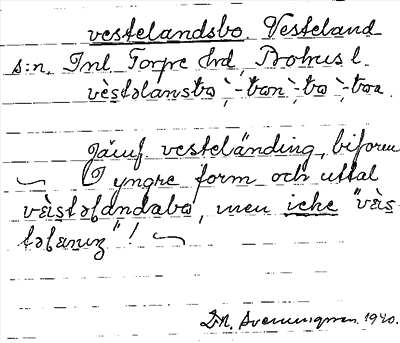 vestelandsbo. Vesteland
s:n, Inl Torpe hd, Bohus l.
vè̀stəlansbo, -bon, -bo, -boa
Jämf. vesteländing, biform
I yngre form och uttal
vèistəlandsbo, men icke "vèis-
təlæniŋ"!
D.N. Svenningsson. 1940.